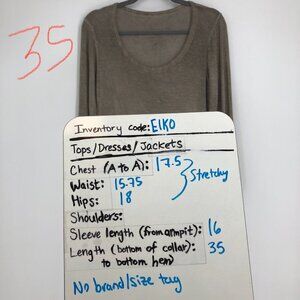 35
Inventory code: EIKO
Tops/Dresses/Jackets
Chest (A to A): 17.5
Waist: 15.75
Hips: 18
Stretchy
Shoulders:
Sleeve length (from armpit): 16
Length (bottom of collar): 35
to bottom hem)
No brand/size tag